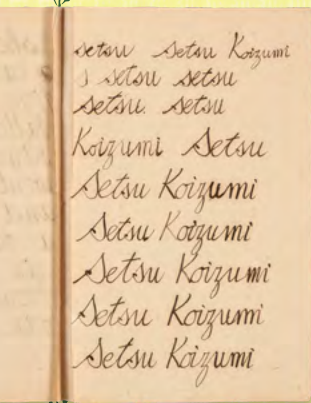 setsu setsu Koizumi
s setsu setsu
setsu. setsu
Koizumi Setsu
Setsu Koizumi
Setsu Koizumi
Setsu Koizumi
Setsu Koizumi
Setsu Koizumi